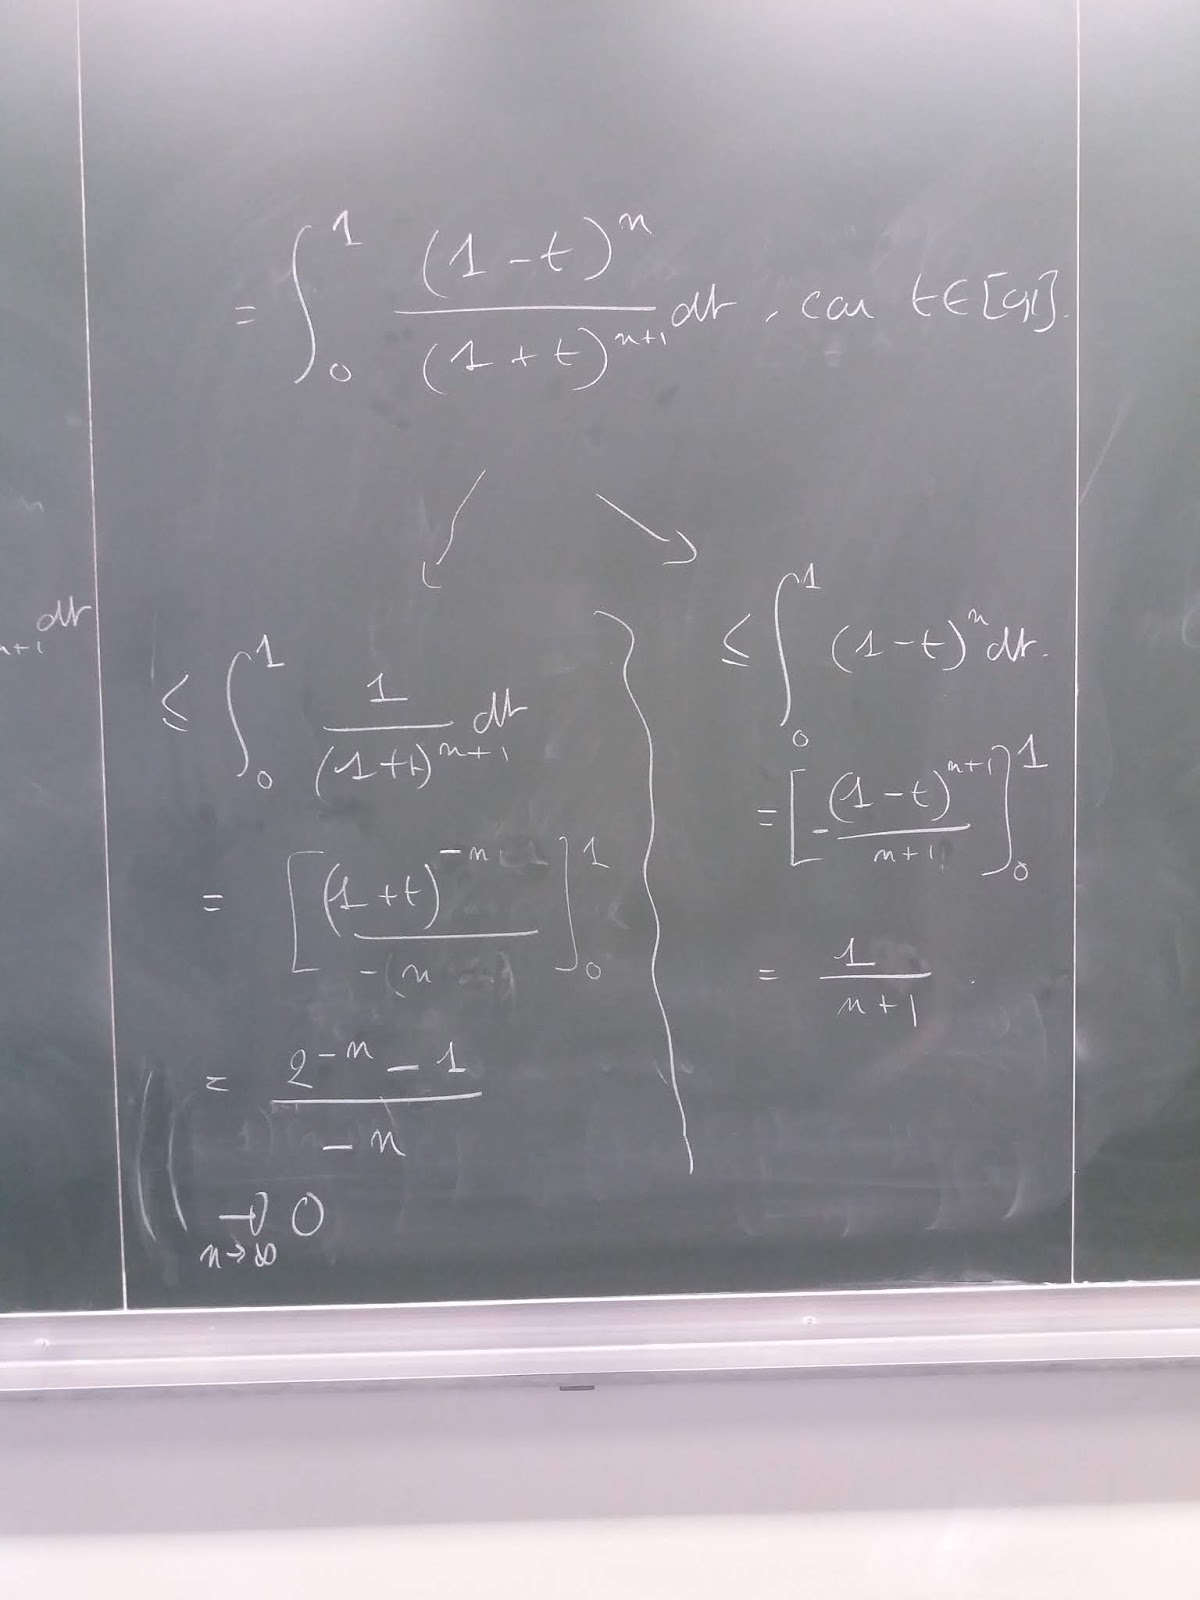 = ∫_0^1 (1-t)^n / (1+t)^{n+1} dt, car t∈[0,1].
n+1 dt
≤ ∫_0^1 1 / (1+t)^{n+1} dt
= [ (1+t)^{-n} / -(n ]_0^1
= 2^{-n} - 1 / -n
→ 0
n→∞
≤ ∫_0^1 (1-t)^n dt.
= [ - (1-t)^{n+1} / n+1 ]_0^1
= 1 / n+1 .